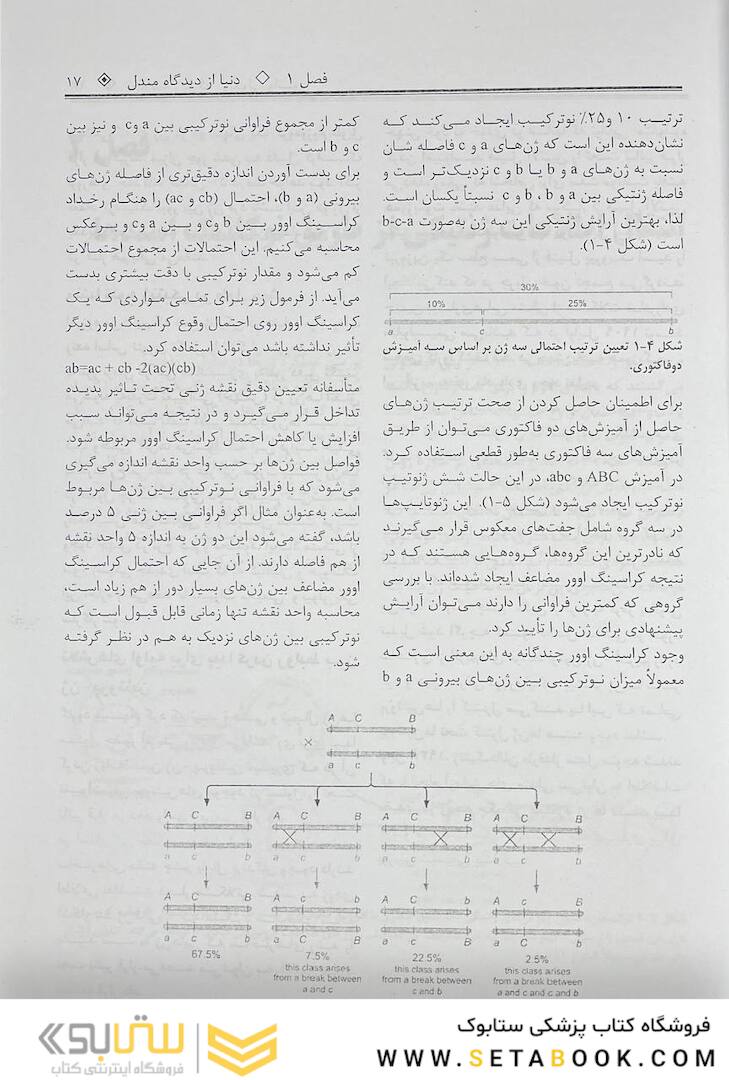 فصل ۱ ◇ دنیا از دیدگاه مندل ۱۷
ترتیب ۱۰ و۲۵٪ نوترکیب ایجاد می‌کند که
نشان‌دهنده این است که ژن‌های a و c فاصله شان
نسبت به ژن‌های a و b یا b و c نزدیک‌تر است و
فاصله ژنتیکی بین a و b ، b و c نسبتاً یکسان است.
لذا، بهترین آرایش ژنتیکی این سه ژن به‌صورت b-c-a
است (شکل ۴-۱).
30%
10% 25%
a c b
شکل ۴-۱ تعیین ترتیب احتمالی سه ژن بر اساس سه آمیزش
دوفاکتوری.
برای اطمینان حاصل کردن از صحت ترتیب ژن‌های
حاصل از آمیزش‌های دو فاکتوری می‌توان از طریق
آمیزش‌های سه فاکتوری به‌طور قطعی استفاده کرد.
در آمیزش ABC و abc، در این حالت شش ژنوتیپ
نوترکیب ایجاد می‌شود (شکل ۵-۱). این ژنوتایپ‌ها
در سه گروه شامل جفت‌های معکوس قرار می‌گیرند
که نادرترین این گروه‌ها، گروه‌هایی هستند که در
نتیجه کراسینگ اوور مضاعف ایجاد شده‌اند. با بررسی
گروهی که کمترین فراوانی را دارند می‌توان آرایش
پیشنهادی برای ژن‌ها را تأیید کرد.
وجود کراسینگ اوور چندگانه به این معنی است که
معمولاً میزان نوترکیبی بین ژن‌های بیرونی a و b
کمتر از مجموع فراوانی نوترکیبی بین a وc و نیز بین
c و b است.
برای بدست آوردن اندازه دقیق‌تری از فاصله ژن‌های
بیرونی (a و b)، احتمال (cb و ac) را هنگام رخداد
کراسینگ اوور بین b وc و بین a وc و برعکس
محاسبه می‌کنیم. این احتمالات از مجموع احتمالات
کم می‌شود و مقدار نوترکیبی با دقت بیشتری بدست
می‌آید. از فرمول زیر برای تمامی مواردی که یک
کراسینگ اوور روی احتمال وقوع کراسینگ اوور دیگر
تأثیر نداشته باشد می‌توان استفاده کرد.
ab=ac + cb -2(ac)(cb)
متأسفانه تعیین دقیق نقشه ژنی تحت تاثیر پدیده
تداخل قرار می‌گیرد و در نتیجه می‌تواند سبب
افزایش یا کاهش احتمال کراسینگ اوور مربوطه شود.
فواصل بین ژن‌ها بر حسب واحد نقشه اندازه می‌گیری
می‌شود که با فراوانی نوترکیبی بین ژن‌ها مربوط
است. به‌عنوان مثال اگر فراوانی بین ژنی ۵ درصد
باشد، گفته می‌شود این دو ژن به اندازه ۵ واحد نقشه
از هم فاصله دارند. از آن جایی که احتمال کراسینگ
اوور مضاعف بین ژن‌های بسیار دور از هم زیاد است،
محاسبه واحد نقشه تنها زمانی قابل قبول است که
نوترکیبی بین ژن‌های نزدیک به هم در نظر گرفته
شود.
A C B
×
a c b
A C B A C B A C B A C B
a c b a c b a c b a c b
A C B A c b A C b A c B
a c b a C B a c B a C b
67.5% 7.5% 22.5% 2.5%
this class arises this class arises this class arises
from a break between from a break between from a break between
a and c c and b a and c and c and b
فروشگاه کتاب پزشکی ستابوک
WWW.SETABOOK.COM
ستابوک
فروشگاه اینترنتی کتاب